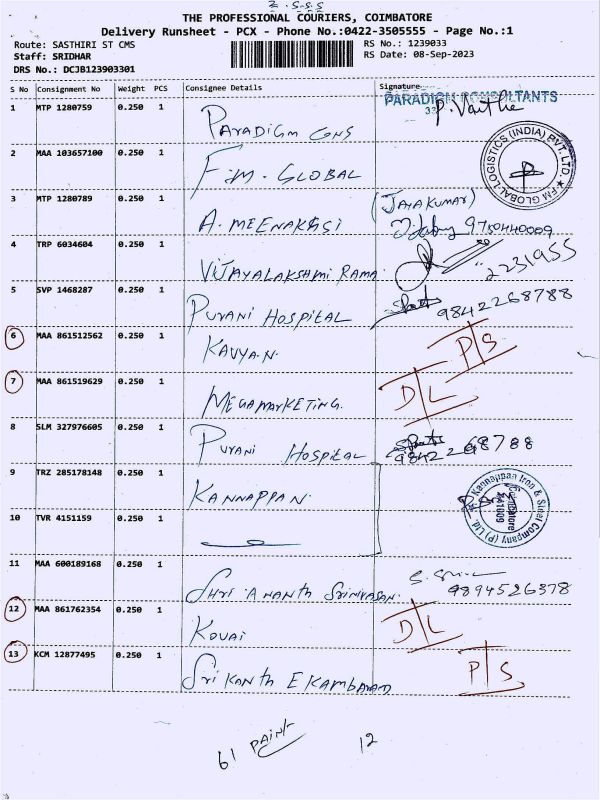 THE PROFESSIONAL COURIERS, COIMBATORE
Delivery Runsheet - PCX - Phone No.:0422-3505555 - Page No.:1
Route: SASTHIRI ST CMS
RS No.: 1239033
Staff: SRIDHAR
RS Date: 08-Sep-2023
DRS No.: DCJB123903301
S No Consignment No Weight PCS Consignee Details Signature
PARADIGM CONSULTANTS
1 MTP 1280759 0.250 1 PARADIGM CONS P. Vasithe
2 MAA 103657100 0.250 1 F.M. GLOBAL
FM GLOBAL LOGISTICS (INDIA) PVT. LTD.
3 MTP 1280789 0.250 1 A. MEENAKASI (JAYAKUMAR)
9750440009
4 TRP 6034604 0.250 1 VIJAYALAKSHMI RAMA 2231955
5 SVP 1468287 0.250 1 PURANI HOSPITAL 9842268788
6 MAA 861512562 0.250 1 KAVYA.N. P/S
7 MAA 861519629 0.250 1 MEGAMARKETING. D/L
8 SLM 327976605 0.250 1 PURANI HOSPITAL 9842268788
9 TRZ 285178148 0.250 1 KANNAPPAN
Kannappan Iron & Steel Company (P) Ltd
Coimbatore
641009
10 TVR 4151159 0.250 1
11 MAA 600189168 0.250 1 SHRI ANANTH SRINIVASAN. 9894526378
12 MAA 861762354 0.250 1 KOVAI D/L
13 KCM 12877495 0.250 1 SRIKANTH EKAMBARAM P/S
61 PAINT 12